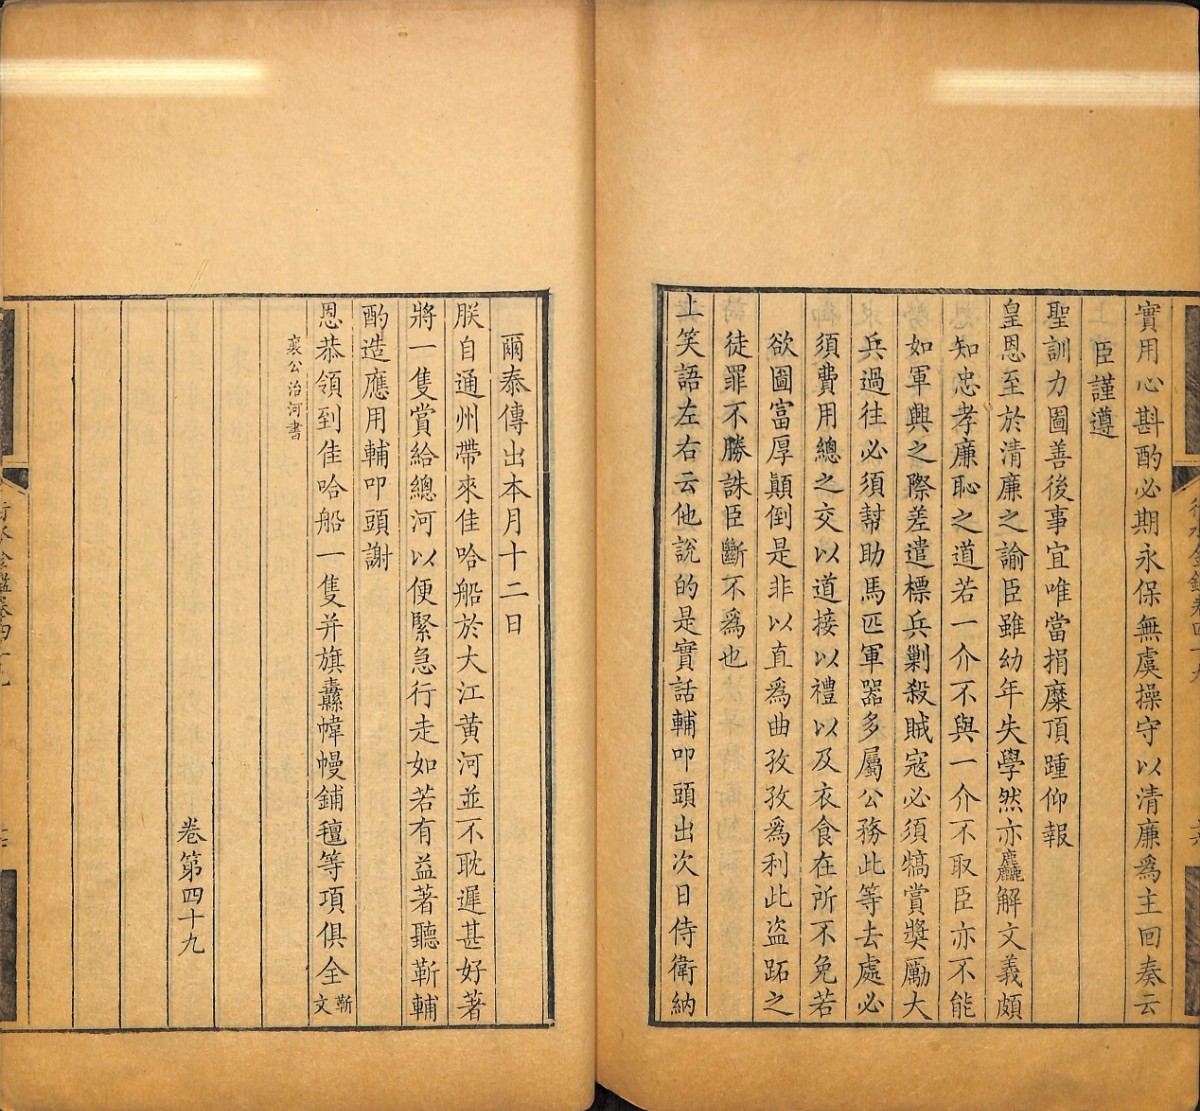 實用心斟酌必期永保無虞操守以清廉為主回奏云
臣謹遵
聖訓力圖善後事宜唯當捐糜頂踵仰報
皇恩至於清廉之諭臣雖幼年失學然亦麤解文義頗
知忠孝廉恥之道若一介不與一介不取臣亦不能
如軍興之際差遣標兵剿殺賊寇必須犒賞獎勵大
兵過往必須幫助馬匹軍器多屬公務此等去處必
須費用總之交以道接以禮以及衣食在所不免若
欲圖富厚顛倒是非以直為曲孜孜為利此盜跖之
徒罪不勝誅臣斷不為也
上笑語左右云他說的是實話輔叩頭出次日侍衛納
爾泰傳出本月十二日
朕自通州帶來佳哈船於大江黃河並不耽遲甚好著
將一隻賞給總河以便緊急行走如若有益著聽靳輔
酌造應用輔叩頭謝
恩恭領到佳哈船一隻并旗纛幃幔鋪氊等項俱全靳文
襄公治河書
卷第四十九